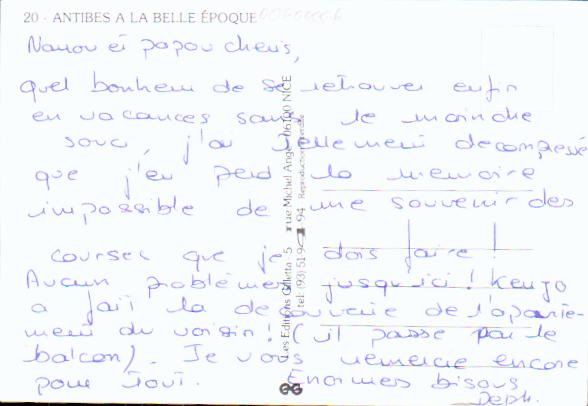 20 - ANTIBES A LA BELLE ÉPOQUE
Nanou et papou cheris,
quel bonheur de se retrouver enfin
en vacances sans le moindre
souci, j'ai tellement decompressé
que j'en perd la memoire
impossible de me souvenir des
courses que je dois faire !
Aucun problèmes jusqu'ici ! Kenzo
a fait la decouverte de l'apparte-
ment du voisin ! ( il passe par le
balcon). Je vous remercie encore
pour tout. Enormes bisous
Deph.
Les Editions Gilletta - 5 rue Michel Ange - 06100 NICE
tel: (93) 51 94 Reproduction interdite